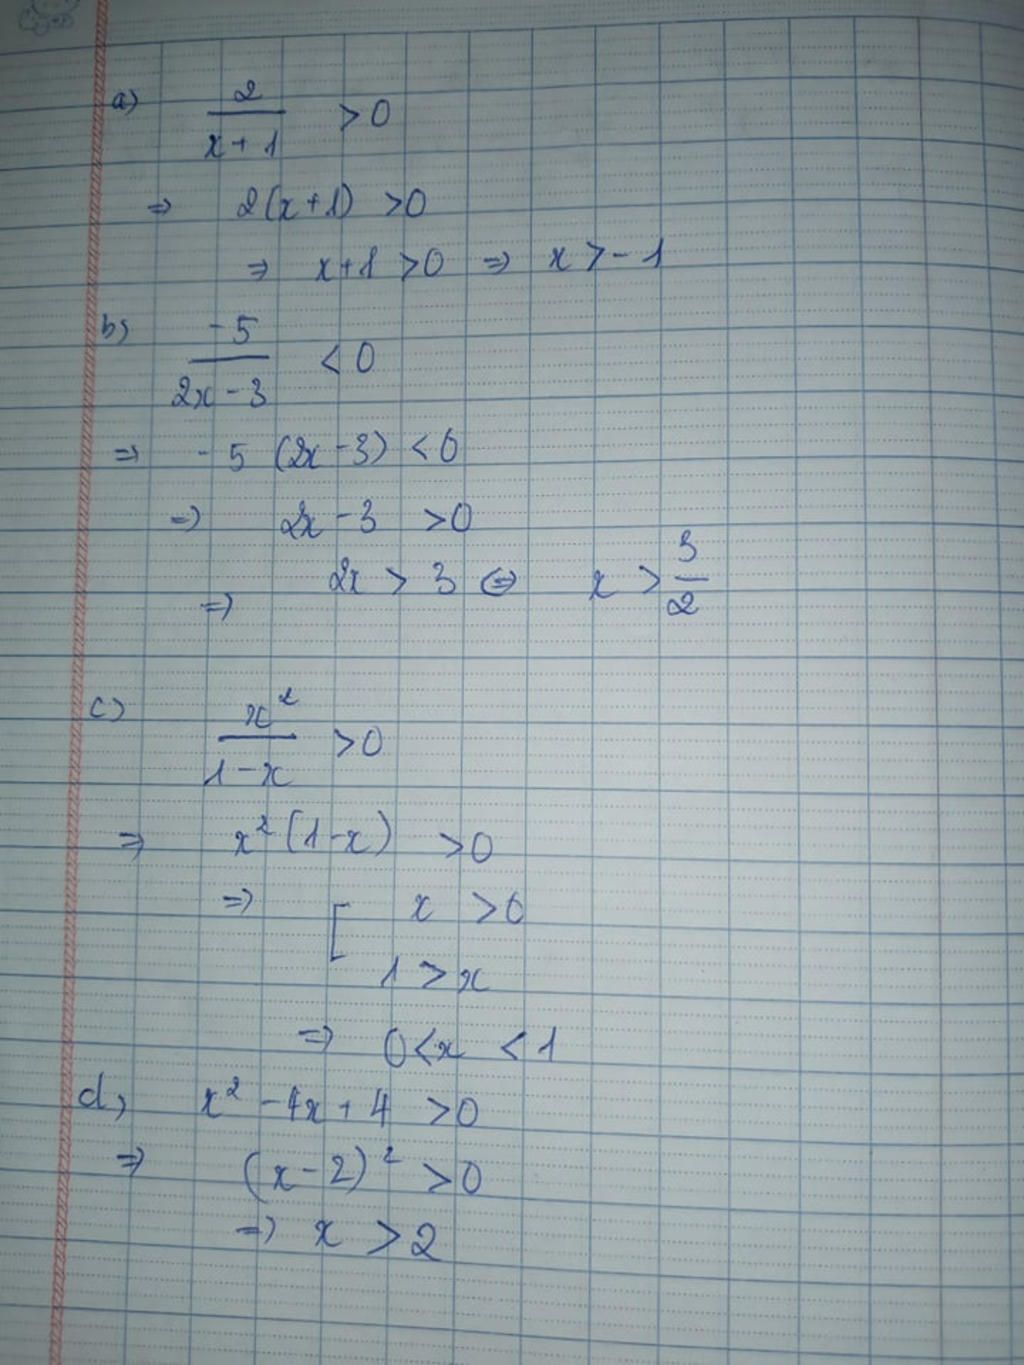 a) 2/(x+1) > 0
⇒ 2(x+1) > 0
⇒ x+1 > 0 ⇒ x > -1
b) -5/(2x-3) < 0
⇒ -5 (2x-3) < 0
⇒ 2x-3 > 0
⇒ 2x > 3 ⇔ x > 3/2
c) x²/(1-x) > 0
⇒ x²(1-x) > 0
⇒ [ x > 0
1 > x
⇒ 0 < x < 1
d) x² - 4x + 4 > 0
⇒ (x-2)² > 0
⇒ x > 2